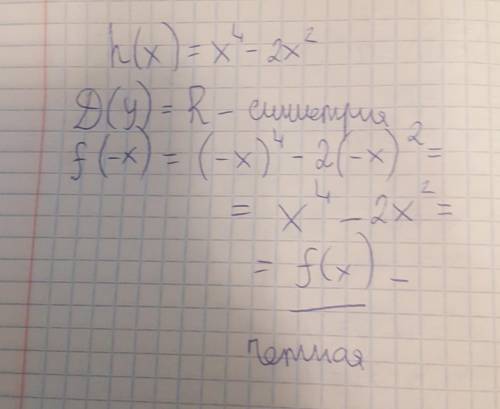 h(x) = x⁴ - 2x²
D(y) = R - симметрия
f(-x) = (-x)⁴ - 2(-x)² =
= x⁴ - 2x² =
= f(x) -
четная